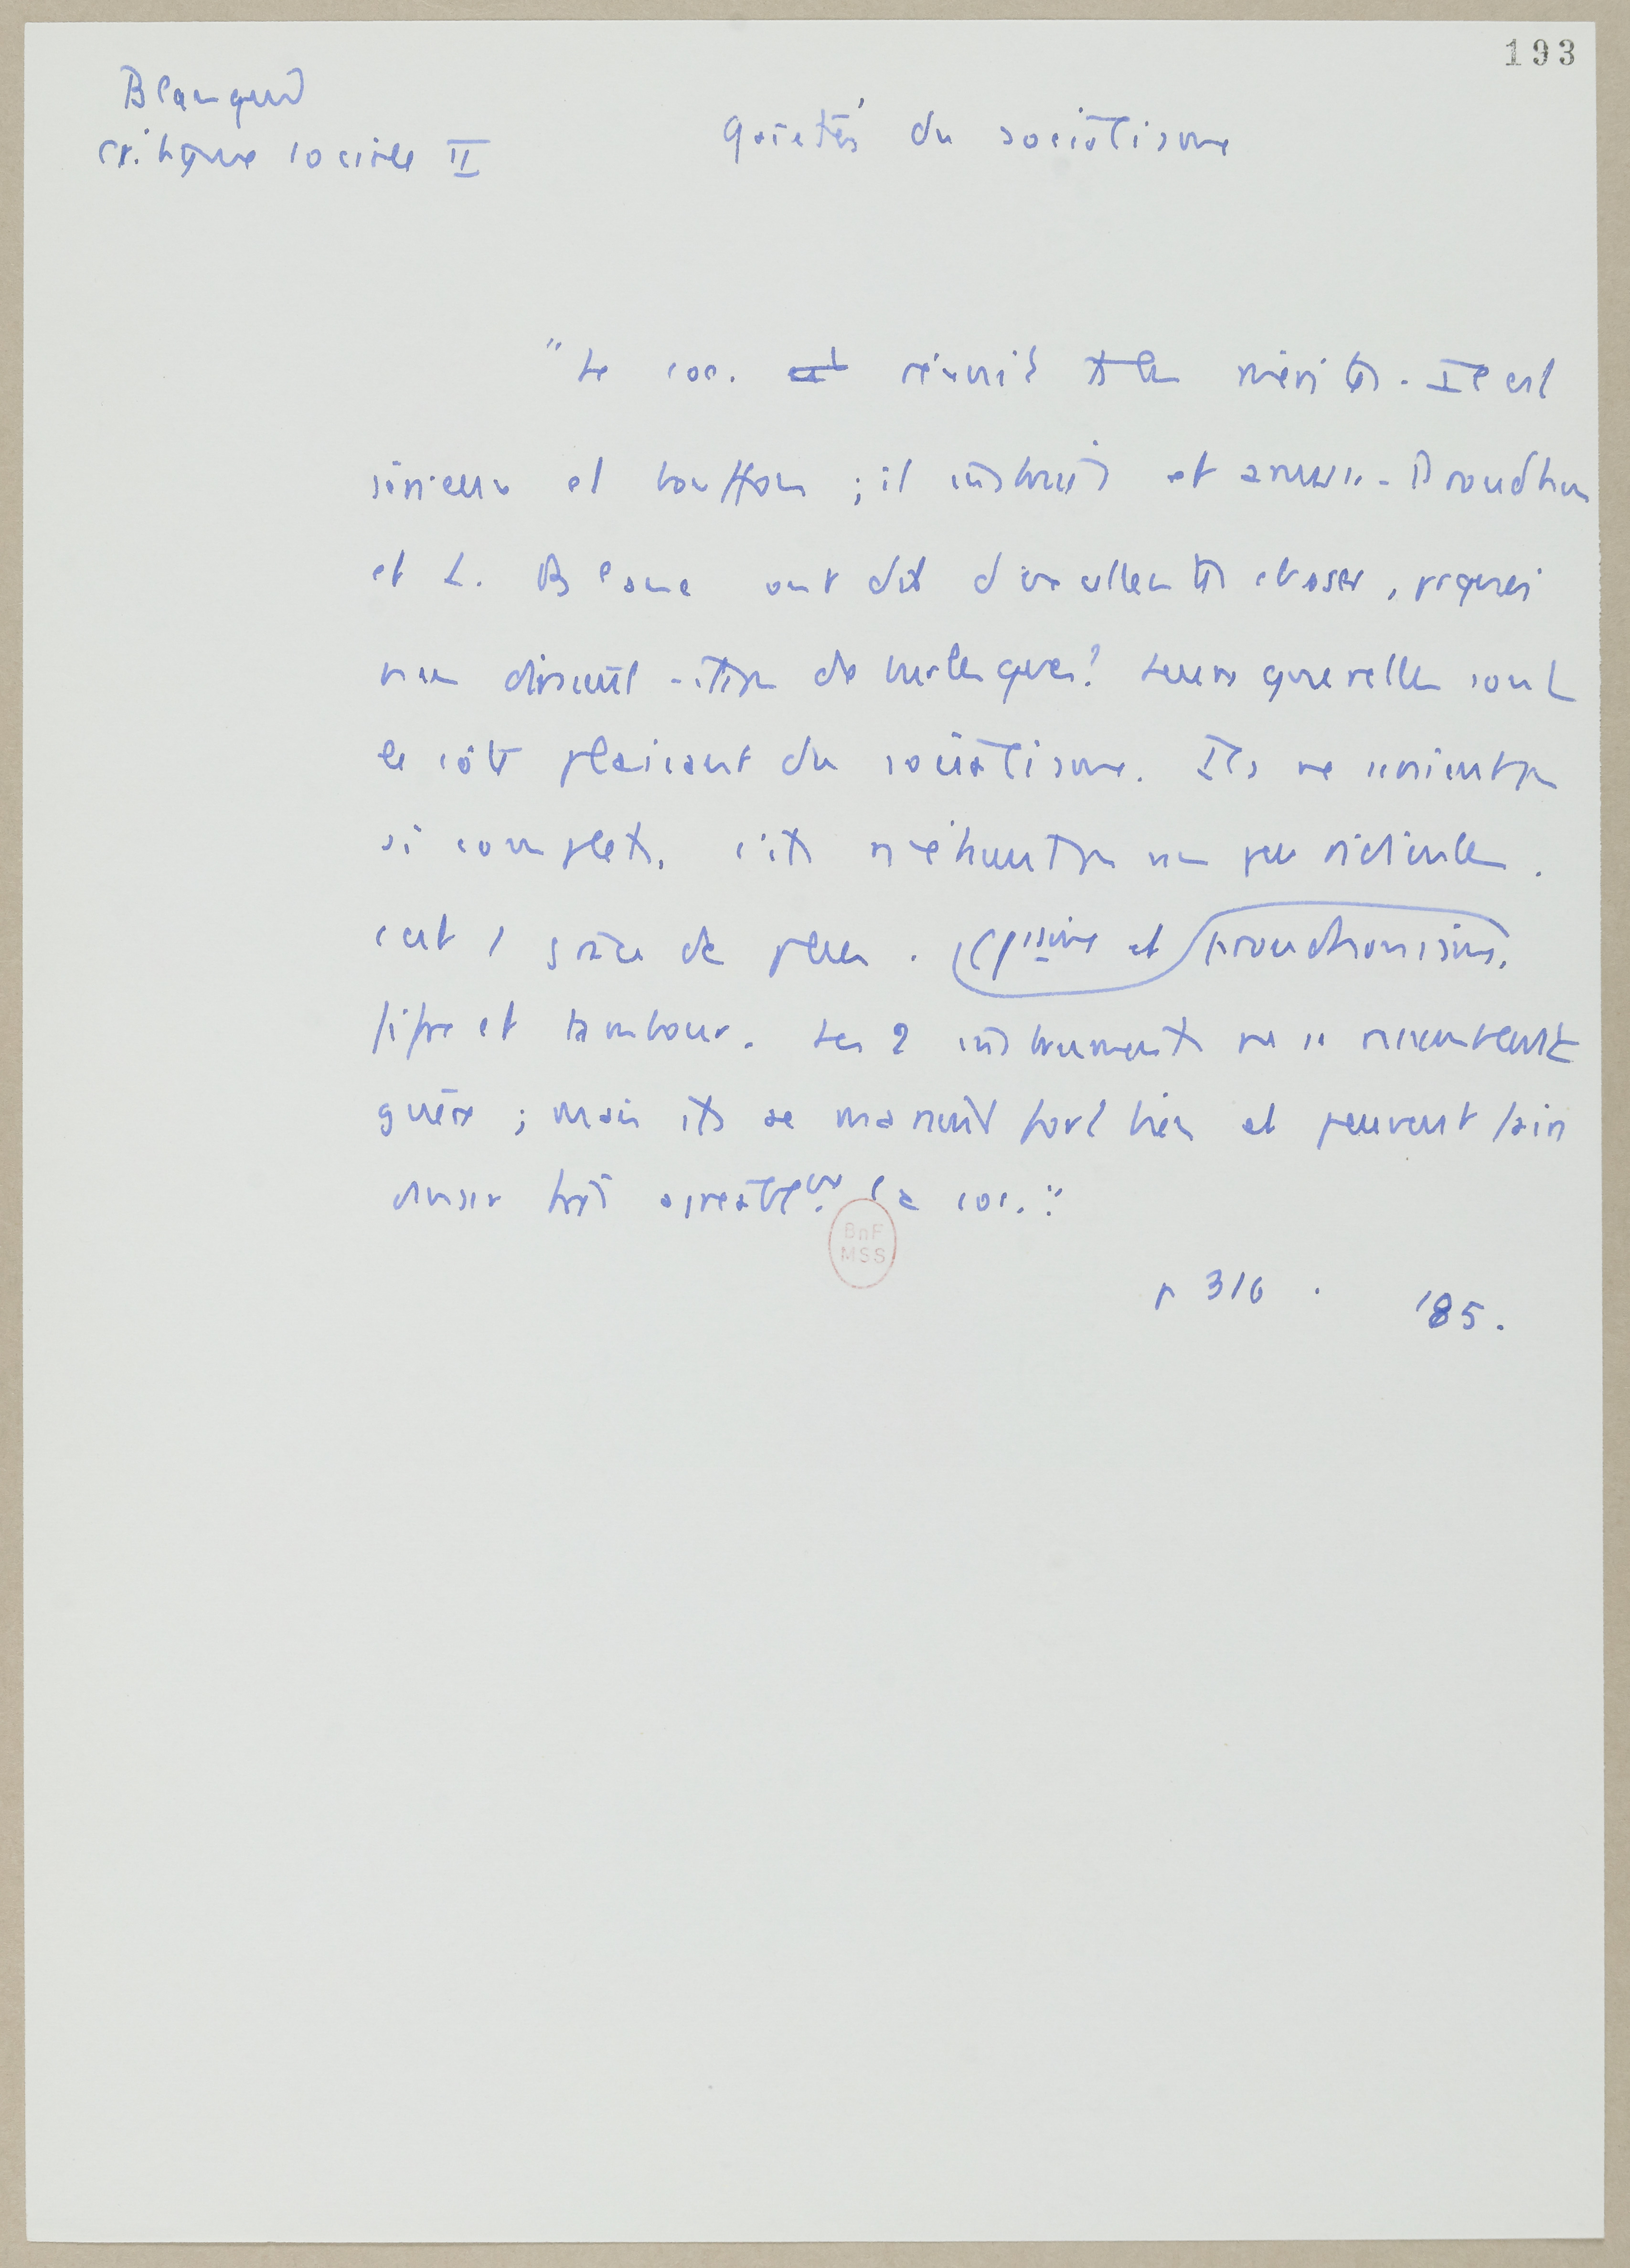 193
Blanqui
critique sociale II
Gaietés du socialisme
"Le soc. est réunit ts les mérites. Il est
sérieux et bouffon ; il instruit et amuse. Proudhon
et L. Blanc ont dit d'excellentes choses, pourquoi
nous diraient-ils pas de burlesques? Leurs querelles sont
le côté plaisant du socialisme. Ils ne seraient pas
si complets, s'ils n'étaient pas un peu ridicules.
c'est 1 grâce de plus. Cisme et proudhonisme,
fifre et tambour. Les 2 instruments ne se ressemblent
guère ; mais ils se marient fort bien et peuvent faire
danser très agréablemt la soc."
p 316. '85.
BnF
MSS